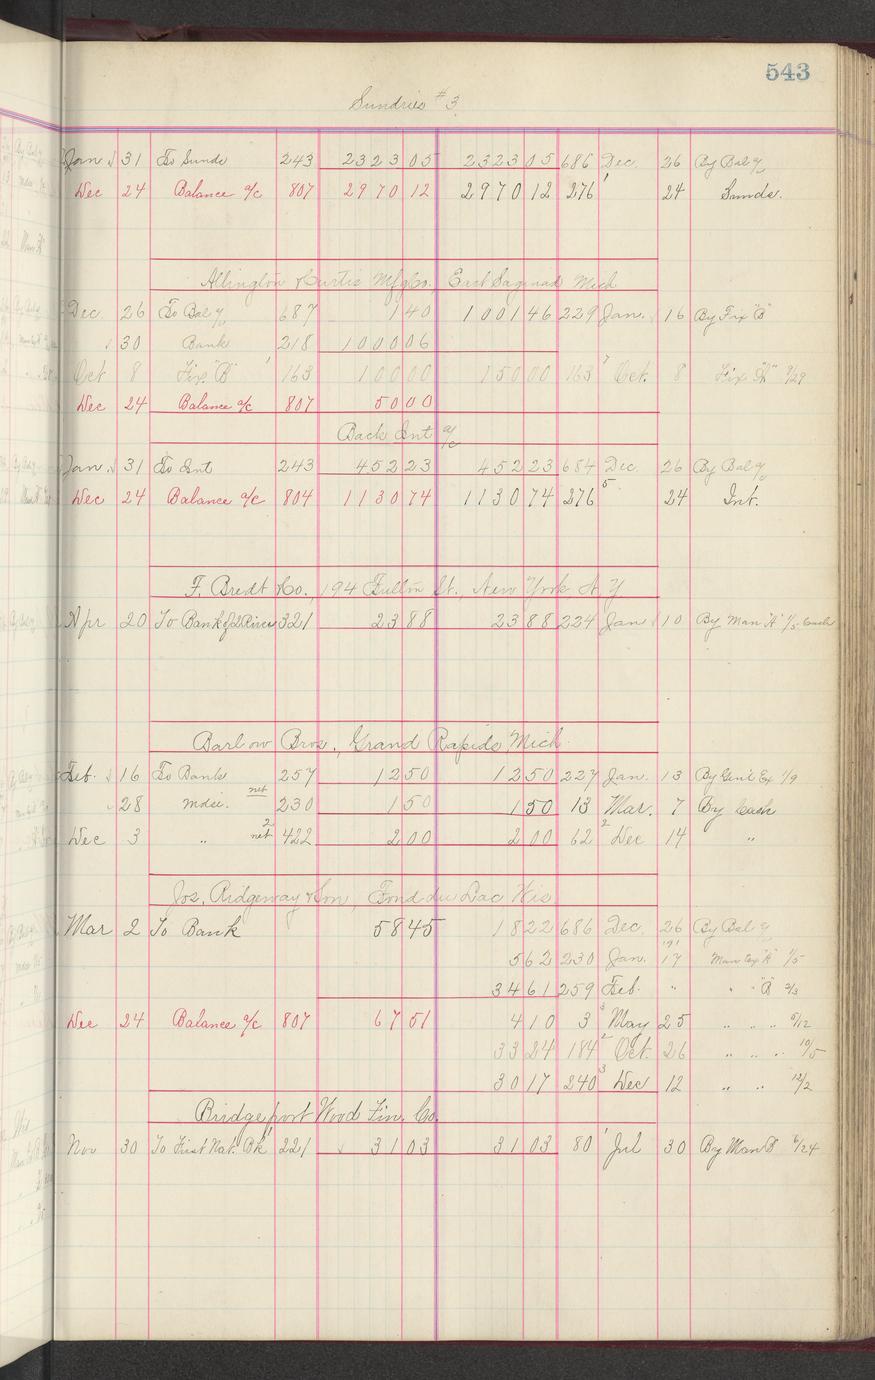 543
Sundries #3
Jan 31 To Sunds 243 2323 05 2323 05 686 Dec. 26 By Bal a/c
Dec 24 Balance a/c 807 2970 12 2970 12 276 1 24 Sunds.
Allington & Curtis Mfg Co., East Saginaw Mich
Dec. 26 To Bal a/c 687 1 40 1001 46 229 Jan. 16 By Fix "B"
30 Bank 218 1000 06
Oct 8 Fix. "B" 1 163 100 00 150 00 163 7 Oct. 8 Fix "A" 9/29
Dec 24 Balance a/c 807 50 00
Back Int a/c
Jan. 31 To Int 243 452 23 452 23 684 Dec. 26 By Bal a/c
Dec 24 Balance a/c 804 1130 74 1130 74 276 5 24 Int.
F. Bredt & Co., 194 Fulton St., New York N.Y
Apr 20 To Bank of 2 Rivers 321 23 88 23 88 224 Jan 10 By Man "A" 1/5
Barlow Bros., Grand Rapids, Mich.
Feb. 16 To Bank 257 12 50 12 50 227 Jan. 13 By Gen'l Ex 1/9
28 mdse. net 230 1 50 1 50 13 Mar. 7 By Cash
Dec 3 " 2 net 422 2 00 2 00 62 2 Dec 14 "
Jos. Ridgeway & Son, Fond du Lac Wis
Mar 2 To Bank 58 45 18 22 686 Dec. 26 By Bal a/c
5 62 230 Jan. 17 Man "A" 1/5
34 61 259 Feb. " " "A" 2/3
Dec 24 Balance a/c 807 67 51 4 10 3 3 May 25 " " " 5/12
33 24 184 2 Oct. 26 " " " 10/5
30 17 240 3 Dec 12 " " 12/2
Bridgeport Wood Fin. Co.
Nov 30 To First Nat. Bk 1 221 31 03 31 03 80 1 Jul 30 By Man B 6/24